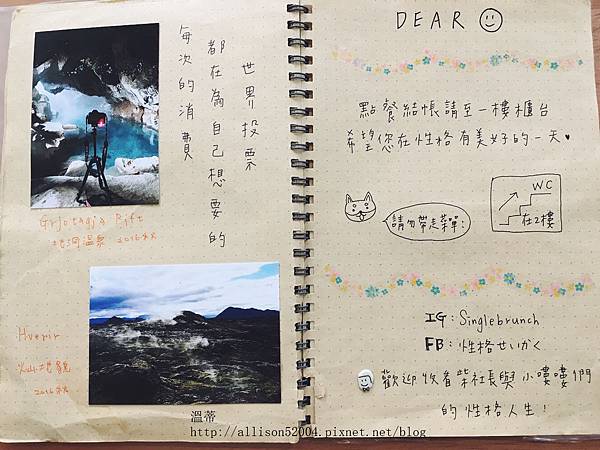 每次的消費
都在為自己想要的
世界投票
Grjotagja Rift
地洞溫泉 2016秋
Hverir
火山地貌
2016秋
DEAR
點餐結帳請至一樓櫃台
希望您在性格有美好的一天♥
請勿帶走菜單!
WC
在2樓
IG: Singlebrunch
FB: 性格せいかく
歡迎收看柴社長與小嘍嘍們
的性格人生!
溫蒂
http://allison52004.pixnet.net/blog